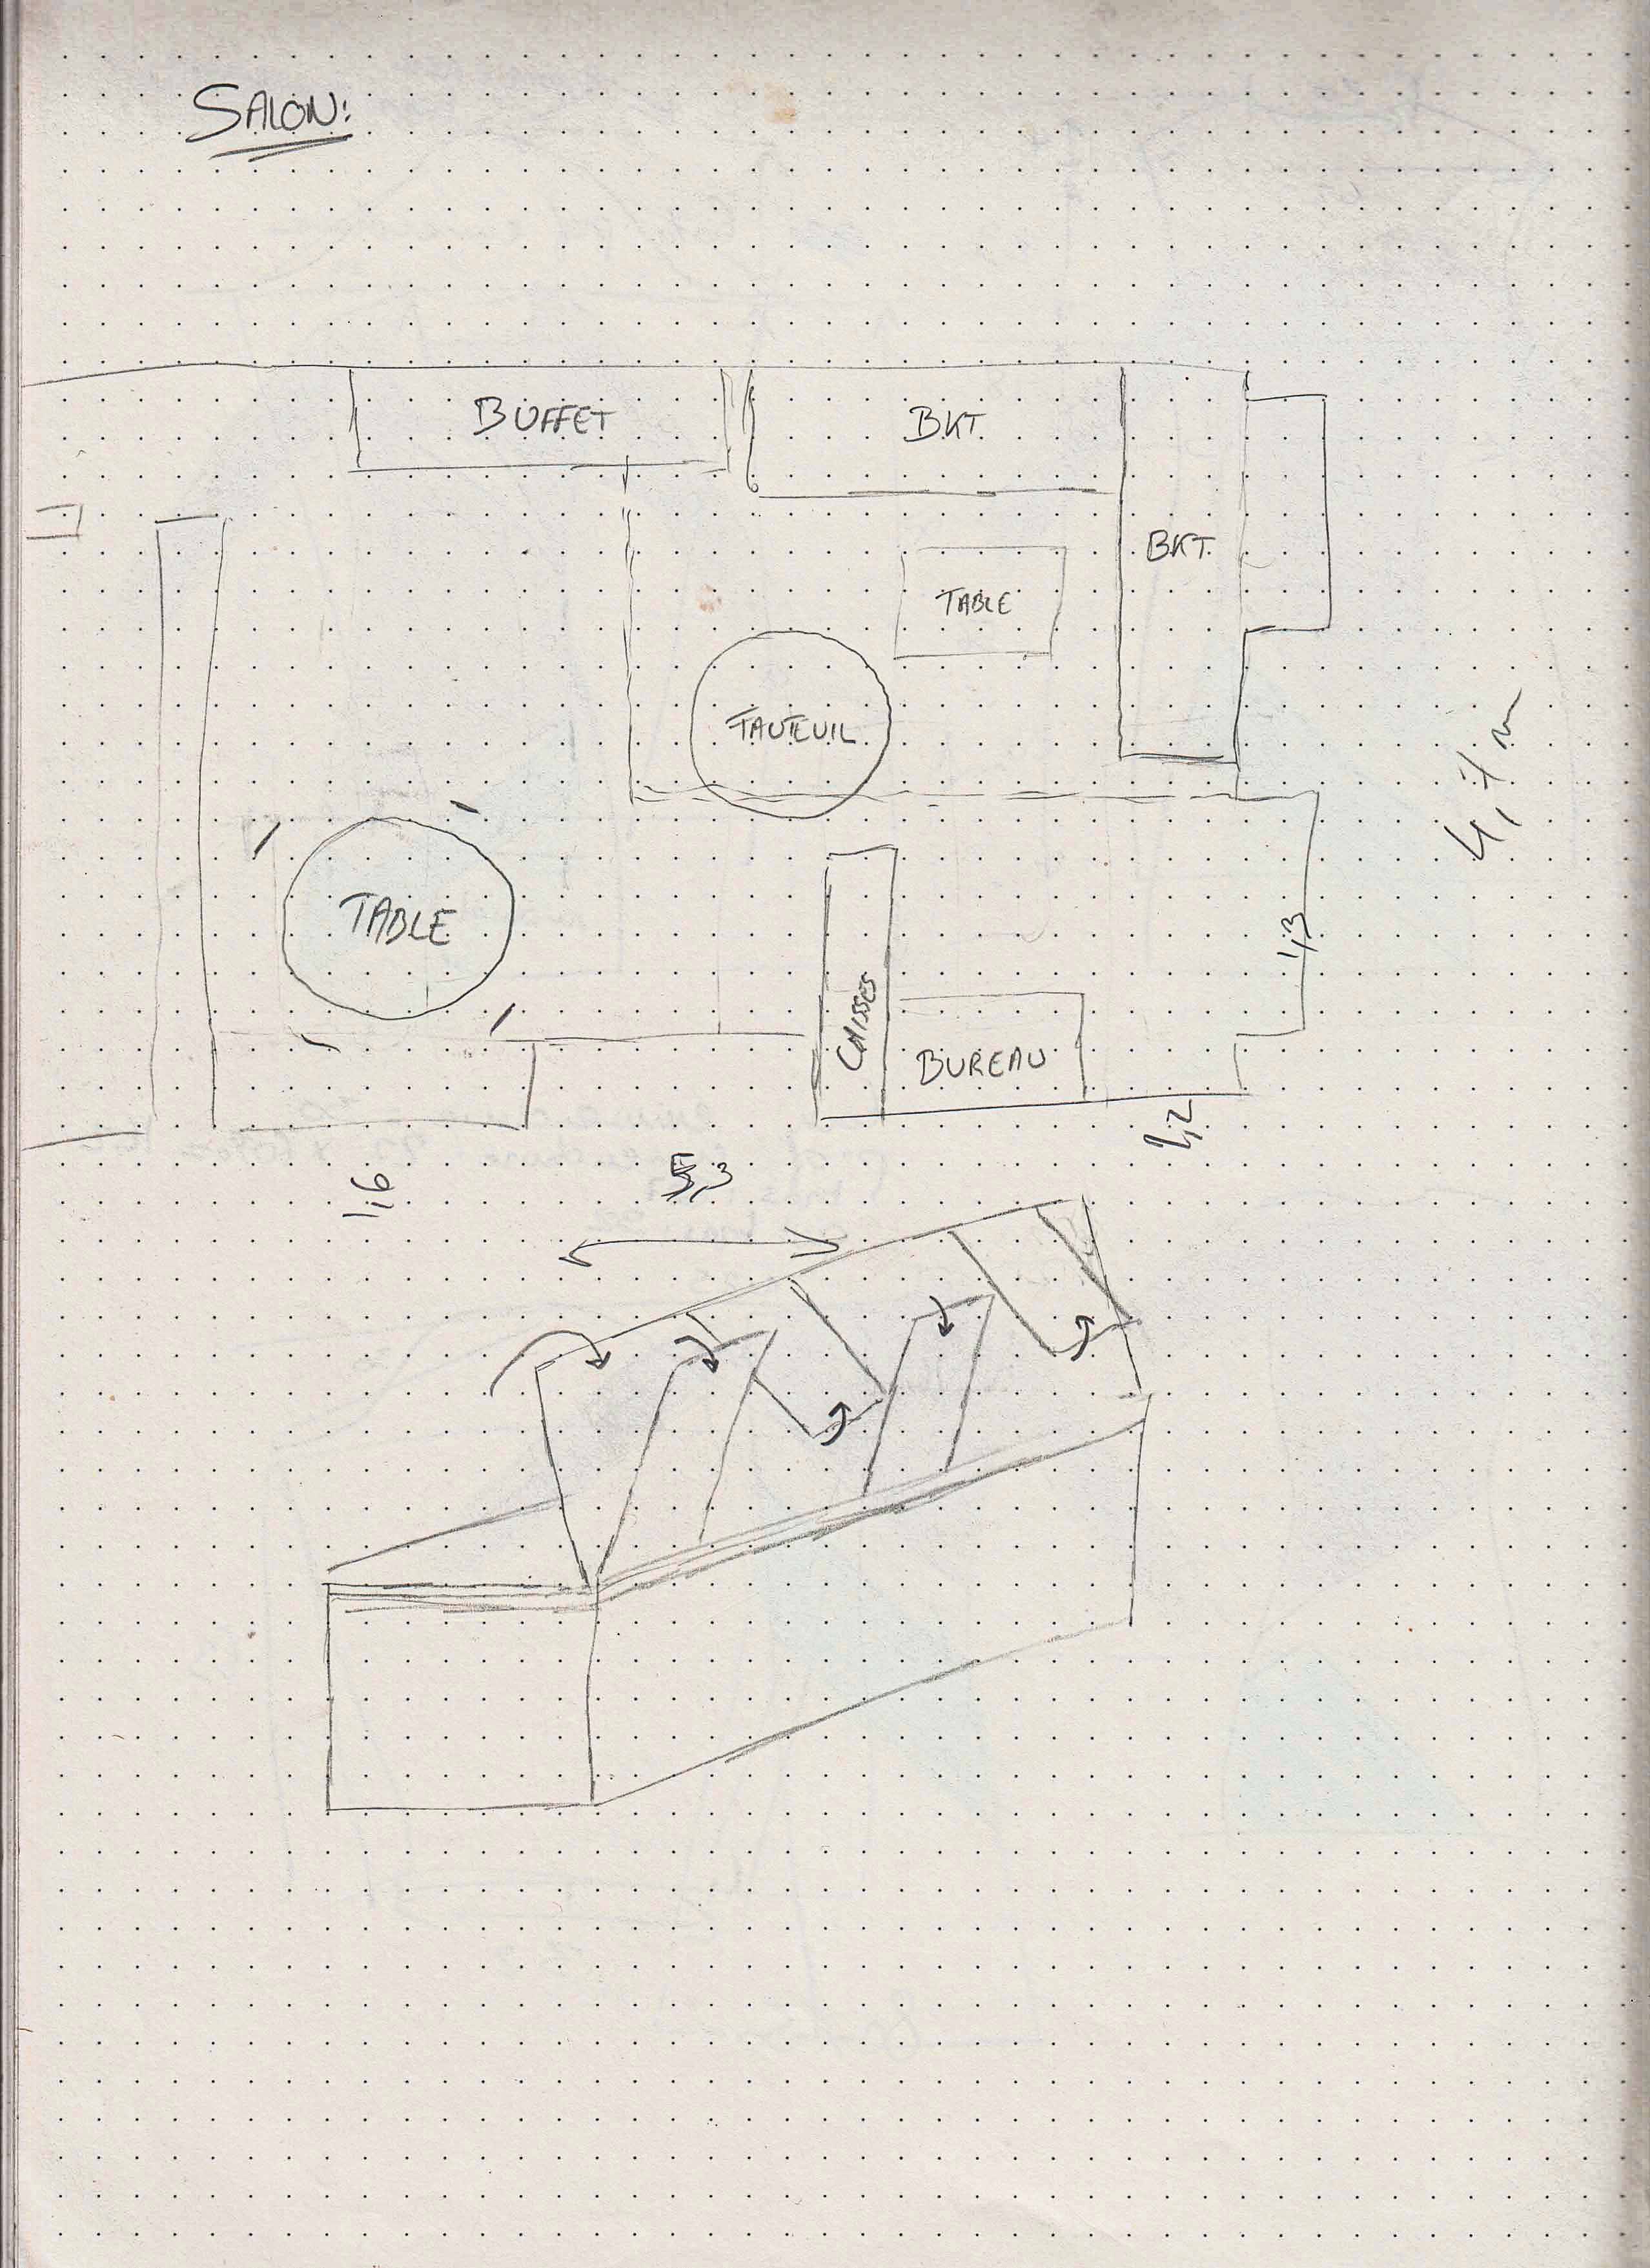 SALON:
BUFFET
BKT
BKT.
TABLE
FAUTEUIL
4,7 m
TABLE
1,3
CAISSES
BUREAU
1,2
1,6
5,3